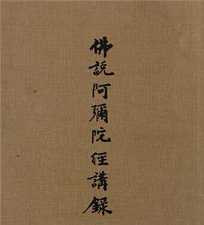 佛説阿彌陀經講錄